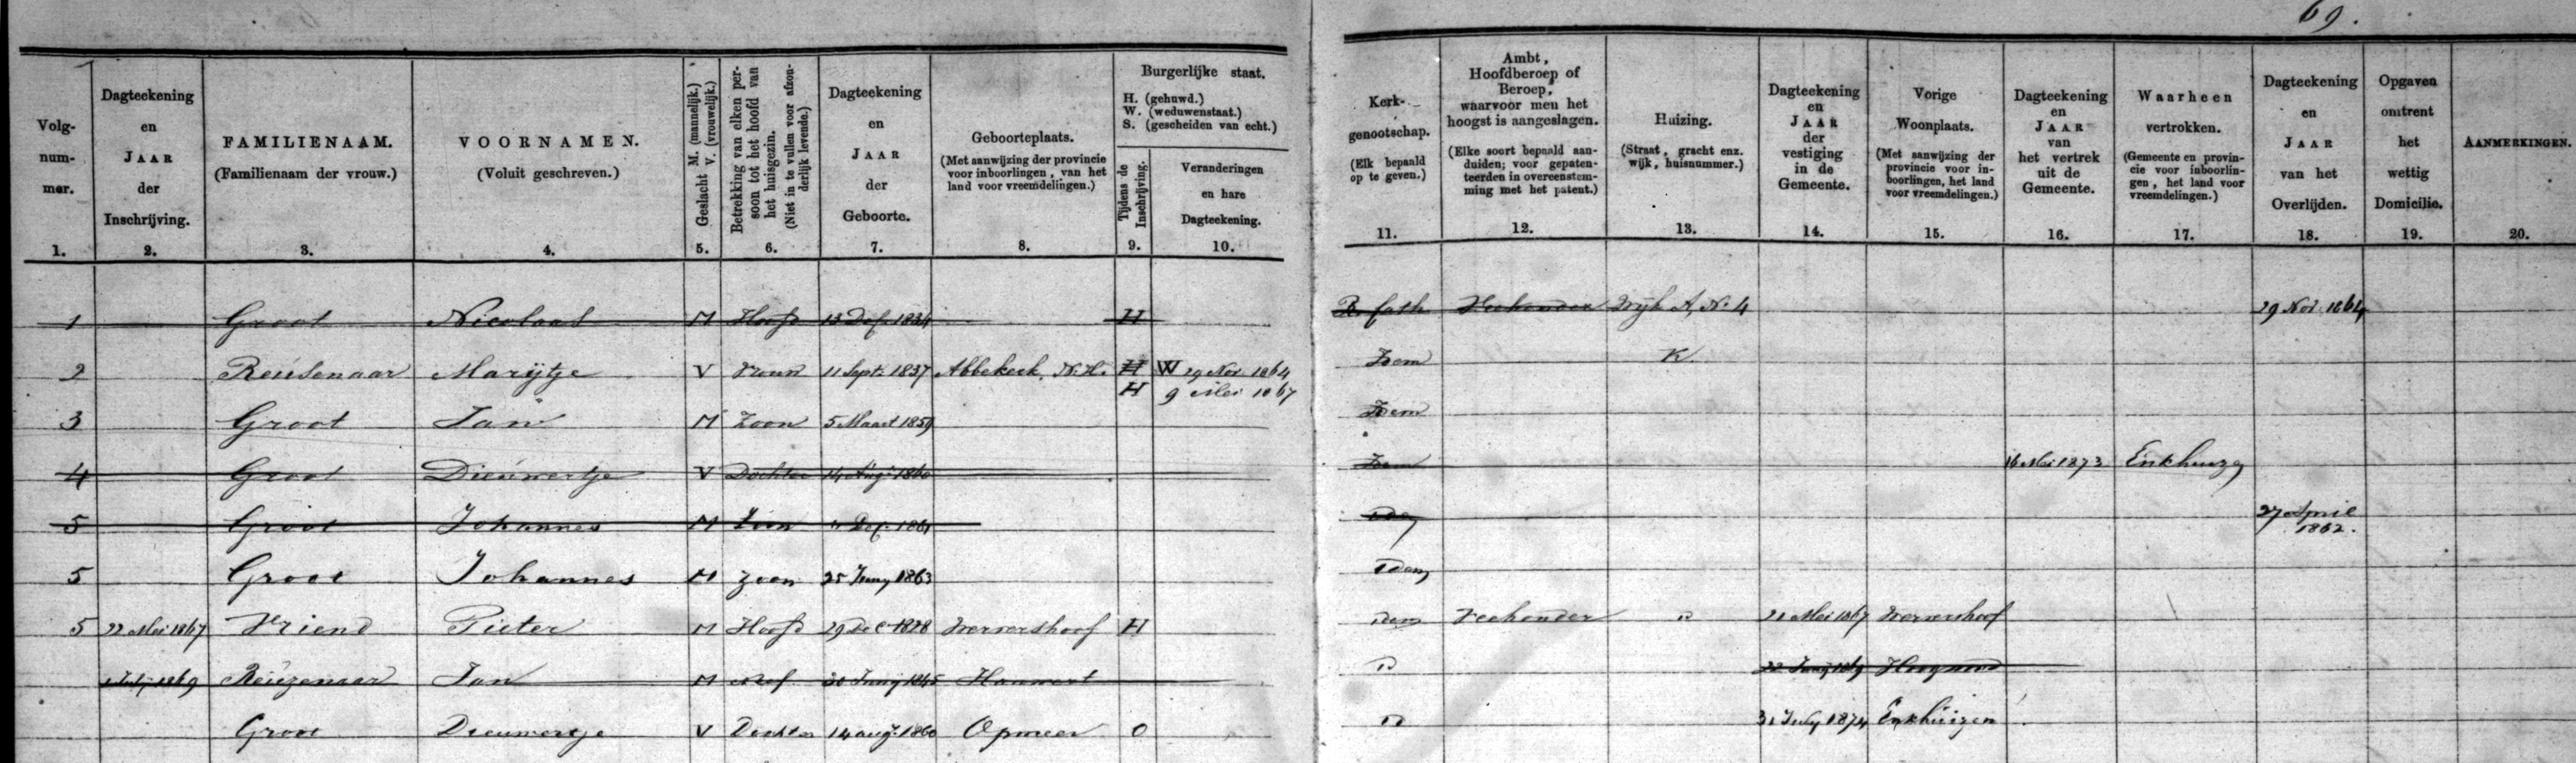 69.
Volg-
num-
mer.
1.
Dagteekening
en
JAAR
der
Inschrijving.
2.
FAMILIENAAM.
(Familienaam der vrouw.)
3.
VOORNAMEN.
(Voluit geschreven.)
4.
Geslacht M. (mannelijk.)
V. (vrouwelijk.)
5.
Betrekking van elken per-
soon tot het hoofd van
het huisgezin.
(Niet in te vullen voor afzon-
derlijk levende.)
6.
Dagteekening
en
JAAR
der
Geboorte.
7.
Geboorteplaats.
(Met aanwijzing der provincie
voor inboorlingen, van het
land voor vreemdelingen.)
8.
Burgerlijke staat.
H. (gehuwd.)
W. (weduwenstaat.)
S. (gescheiden van echt.)
Tijdens de
Inschrijving.
9.
Veranderingen
en hare
Dagteekening.
10.
Kerk-
genootschap.
(Elk bepaald
op te geven.)
11.
Ambt,
Hoofdberoep of
Beroep,
waarvoor men het
hoogst is aangeslagen.
(Elke soort bepaald aan-
duiden; voor gepaten-
teerden in overeenstem-
ming met het patent.)
12.
Huizing.
(Straat, gracht enz.
wijk, huisnummer.)
13.
Dagteekening
en
JAAR
der
vestiging
in de
Gemeente.
14.
Vorige
Woonplaats.
(Met aanwijzing der
provincie voor in-
boorlingen, het land
voor vreemdelingen.)
15.
Dagteekening
en
JAAR
van
het vertrek
uit de
Gemeente.
16.
Waarheen
vertrokken.
(Gemeente en provin-
cie voor inboorlin-
gen, het land voor
vreemdelingen.)
17.
Dagteekening
en
JAAR
van het
Overlijden.
18.
Opgaven
omtrent
het
wettig
Domicilie.
19.
AANMERKINGEN.
20.
1 Groot Nicolaas M Hoofd 13 Dec. 1834 H R. Kath Veehouder Wijk A, No. 4 29 Nov. 1864
2 Reusenaar Marijtje V Vrouw 11 Sept. 1837 Abbekerk, N.H. H W 29 Nov. 1864 Idem K
H 9 Mei 1867
3 Groot Jan M Zoon 5 Maart 1859 Idem
4 Groot Dieuwertje V Dochter 14 Aug. 1860 Idem 16 Mei 1873 Enkhuizen
5 Groot Johannes M Zoon Dec. 1861 Idem 27 April
1862.
5 Groot Johannes M Zoon 25 Juny 1863 Idem
5 22 Mei 1867 Vriend Pieter M Hoofd 29 Dec 1828 Wervershoof H Idem Veehouder D 21 Mei 1867 Wervershoof
July 1869 Reuzenaar Jan M Neef 30 Junij 1845 Hauwert D 22 Junij 1869
Groot Dieuwertje V Dochter 14 aug. 1860 Opmeer O D 31 July 1874 Enkhuizen